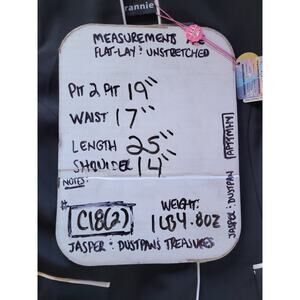 rannie
MEASUREMENTS ARE
FLAT-LAY & UNSTRETCHED
PIT 2 PIT 19"
WAIST 17"
LENGTH 25"
SHOULDER 14"
NOTES:
# C18(2)
WEIGHT:
1LB 4.8OZ
JASPER & DUSTPAN'S TREASURES
JASPER & DUSTPAN